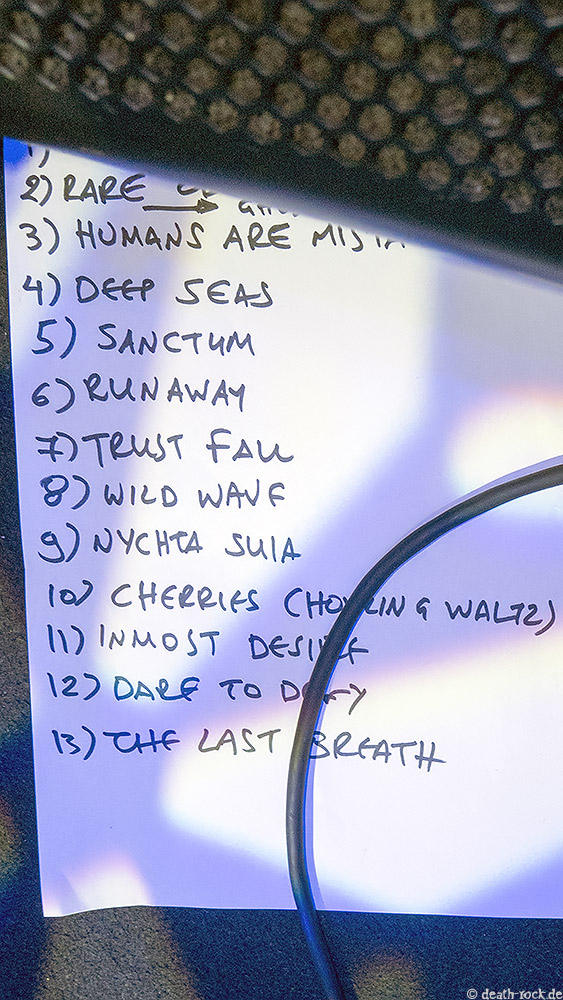 1)
2) RARE
3) HUMANS ARE
4) DEEP SEAS
5) SANCTUM
6) RUNAWAY
7) TRUST FALL
8) WILD WAVE
9) NYCHTA SUIA
10) CHERRIES (HOWLING WALTZ)
11) INMOST DESIRE
12) DARE TO DEFY
13) THE LAST BREATH
© death-rock.de